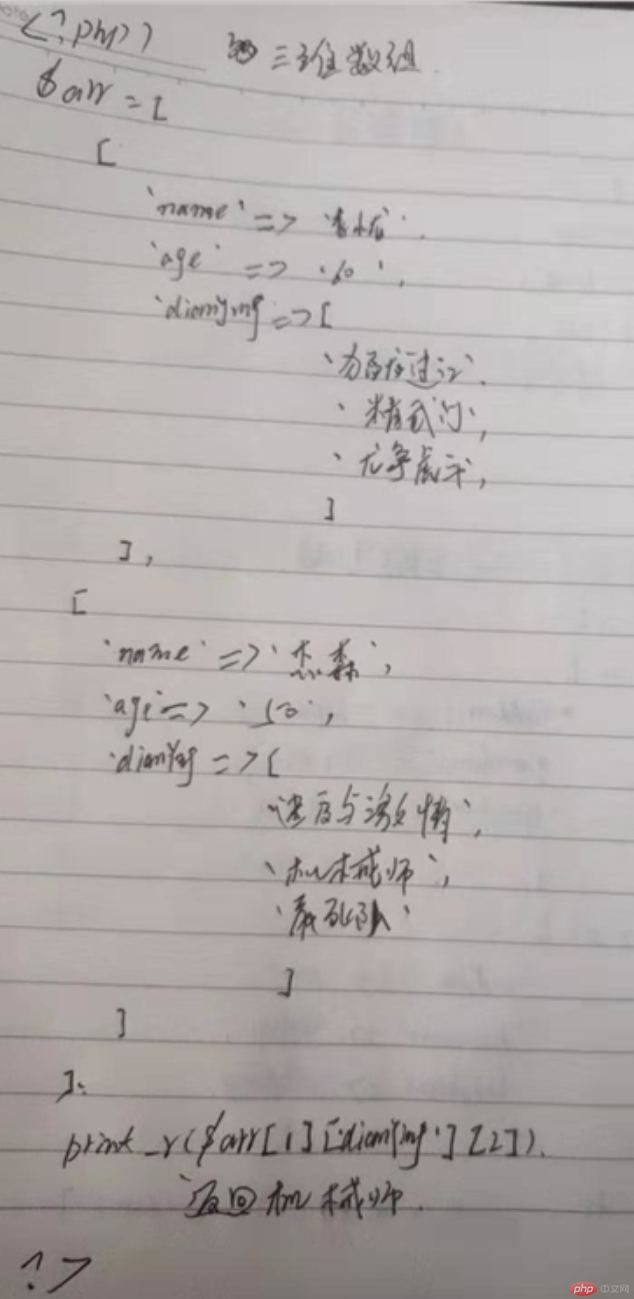 <?php
三维数组
$arr = [
[
'name' => '李小龙'.
'age' => '60',
'dianying => [
'猛龙过江'.
'精武门',
'龙争虎斗,
]
],
[
'name' => '杰森',
'age' => '50',
'dianying => [
'速度与激情',
'机械师',
'敢死队'
]
]
];
print_r($arr[1]['dianying'][2]).
返回机械师.
?>
php 中文网